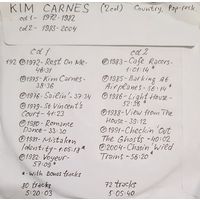 KIM CARNES (2cd) Country, Pop-rock
cd 1 - 1972-1982
cd 2 - 1983-2004
cd 1
192 ① 1972-Rest On Me-
48:31
② 1975-Kim Carnes-
38:36
③ 1976-Sailin'-37:34
④ 1979-St Vincent's
Court-41:23
⑤ 1980-Romance
Dance-33:30
⑥ 1981-Mistaken
Identity-*
⑦ 1982-Voyeur-
57:09*
* - with bonus tracks
80 tracks
5:20:03
cd 2
① 1983-Cafe Racers-
1:01:14*
② 1985-Barking At
Airplanes-56:14*
③ 1986-Light House-
52:36*
④ 1988-View from the
House-39:12
⑤ 1991-Checkin' Out
The Ghosts-40:02
⑥ 2004-Chasin' Wild
Trains-56:20
72 tracks
5:05:40